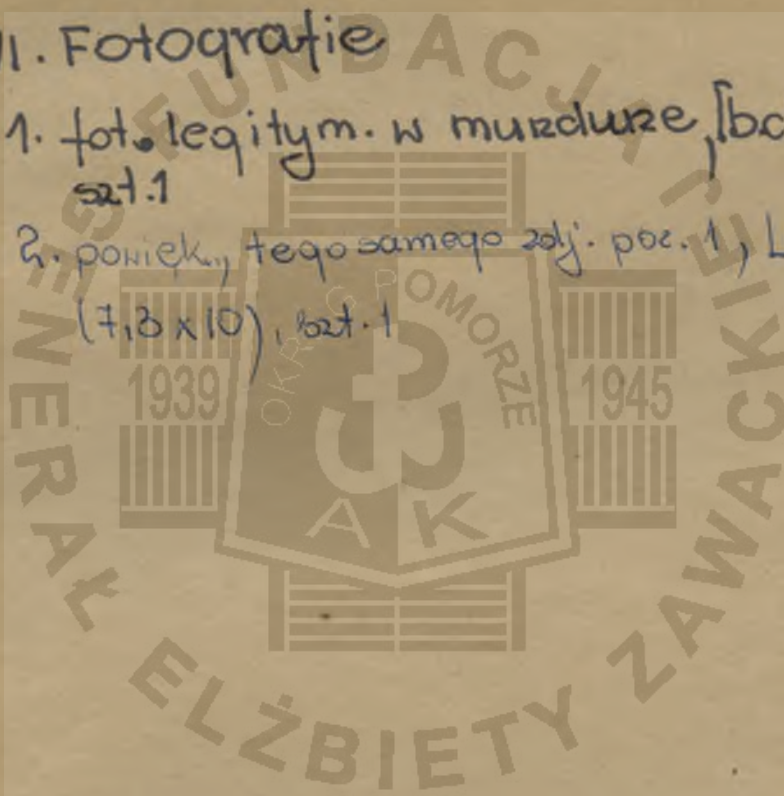 VI. Fotografie
1. fot. legitym. w mundurze, [b.d
szt. 1
2. powięk., tego samego zdj. poz. 1,
(7,3 x 10), szt. 1
FUNDACJA
GENERAŁ ELŻBIETY ZAWACKIEJ
OKRĘG POMORZE
1939
1945
A K